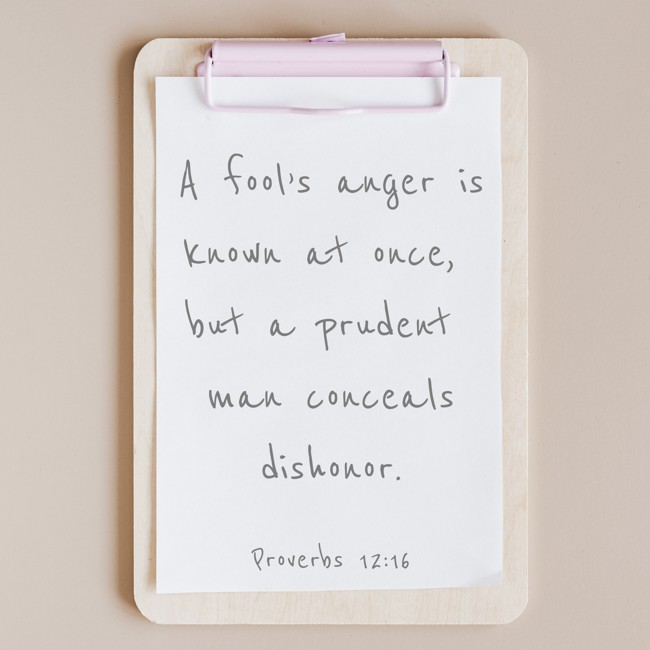 A fool's anger is
known at once,
but a prudent
man conceals
dishonor.
Proverbs 12:16